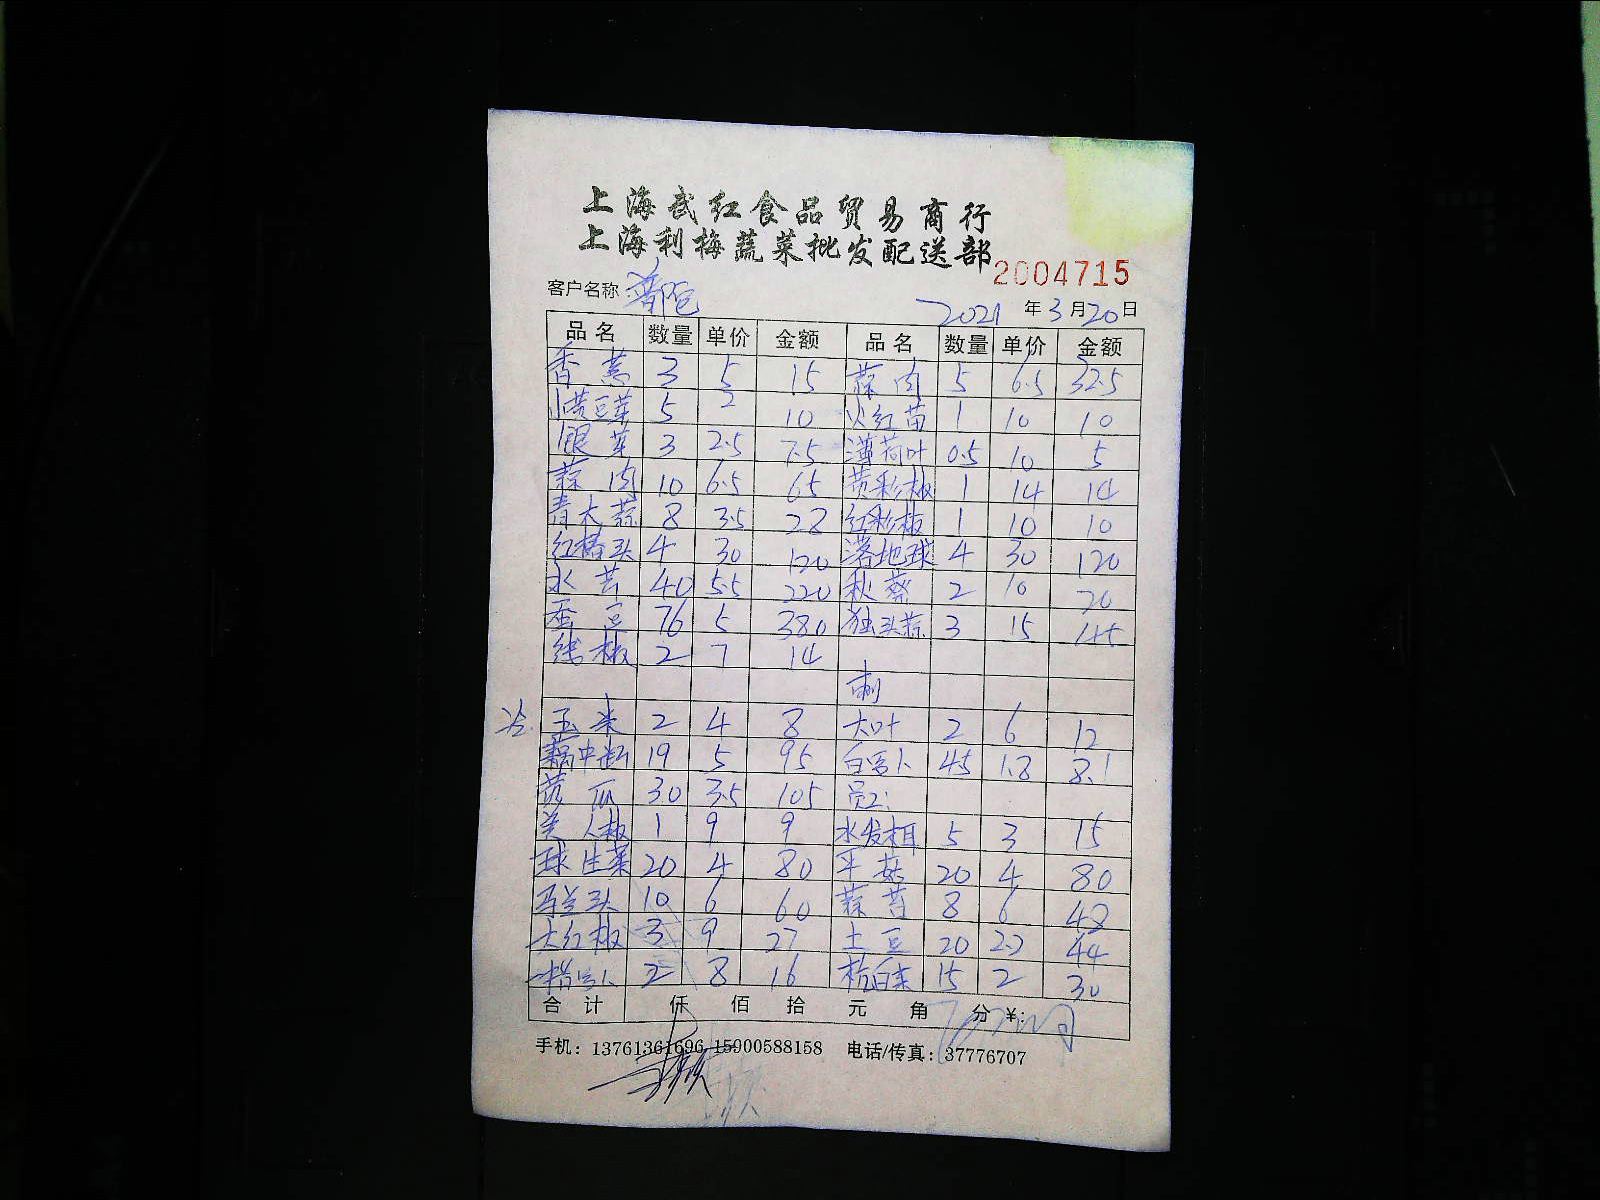 上海武红食品贸易商行
上海利梅蔬菜批发配送部
2004715
客户名称
2021 年 3 月 20 日
品名 数量 单价 金额 品名 数量 单价 金额
香葱 3 5 15 蒜肉 5 6.5 32.5
小黄豆芽 5 2 10 火红苗 1 10 10
银芽 3 2.5 7.5 薄荷叶 0.5 10 5
蒜肉 10 6.5 65 黄彩椒 1 14 14
青大蒜 8 3.5 28 红彩椒 1 10 10
红椿头 4 30 120 落地球 4 30 120
水芹 40 5.5 220 秋葵 2 10 20
蚕豆 76 5 380 独头蒜 3 15 45
线椒 2 7 14
玉米 2 4 8 大叶 2 6 12
藕中断 19 5 95 白萝卜 4.5 1.8 8.1
黄瓜 30 3.5 105 员工:
美人椒 1 9 9 水发木耳 5 3 15
球生菜 20 4 80 平菇 20 4 80
马兰头 10 6 60 蒜苔 8 6 48
大红椒 3 9 27 土豆 20 2.2 44
萝卜 2 8 16 杭白菜 15 2 30
合计 仟 佰 拾 元 角 分 ¥:
手机: 13761361696 15900588158 电话/传真: 37776707